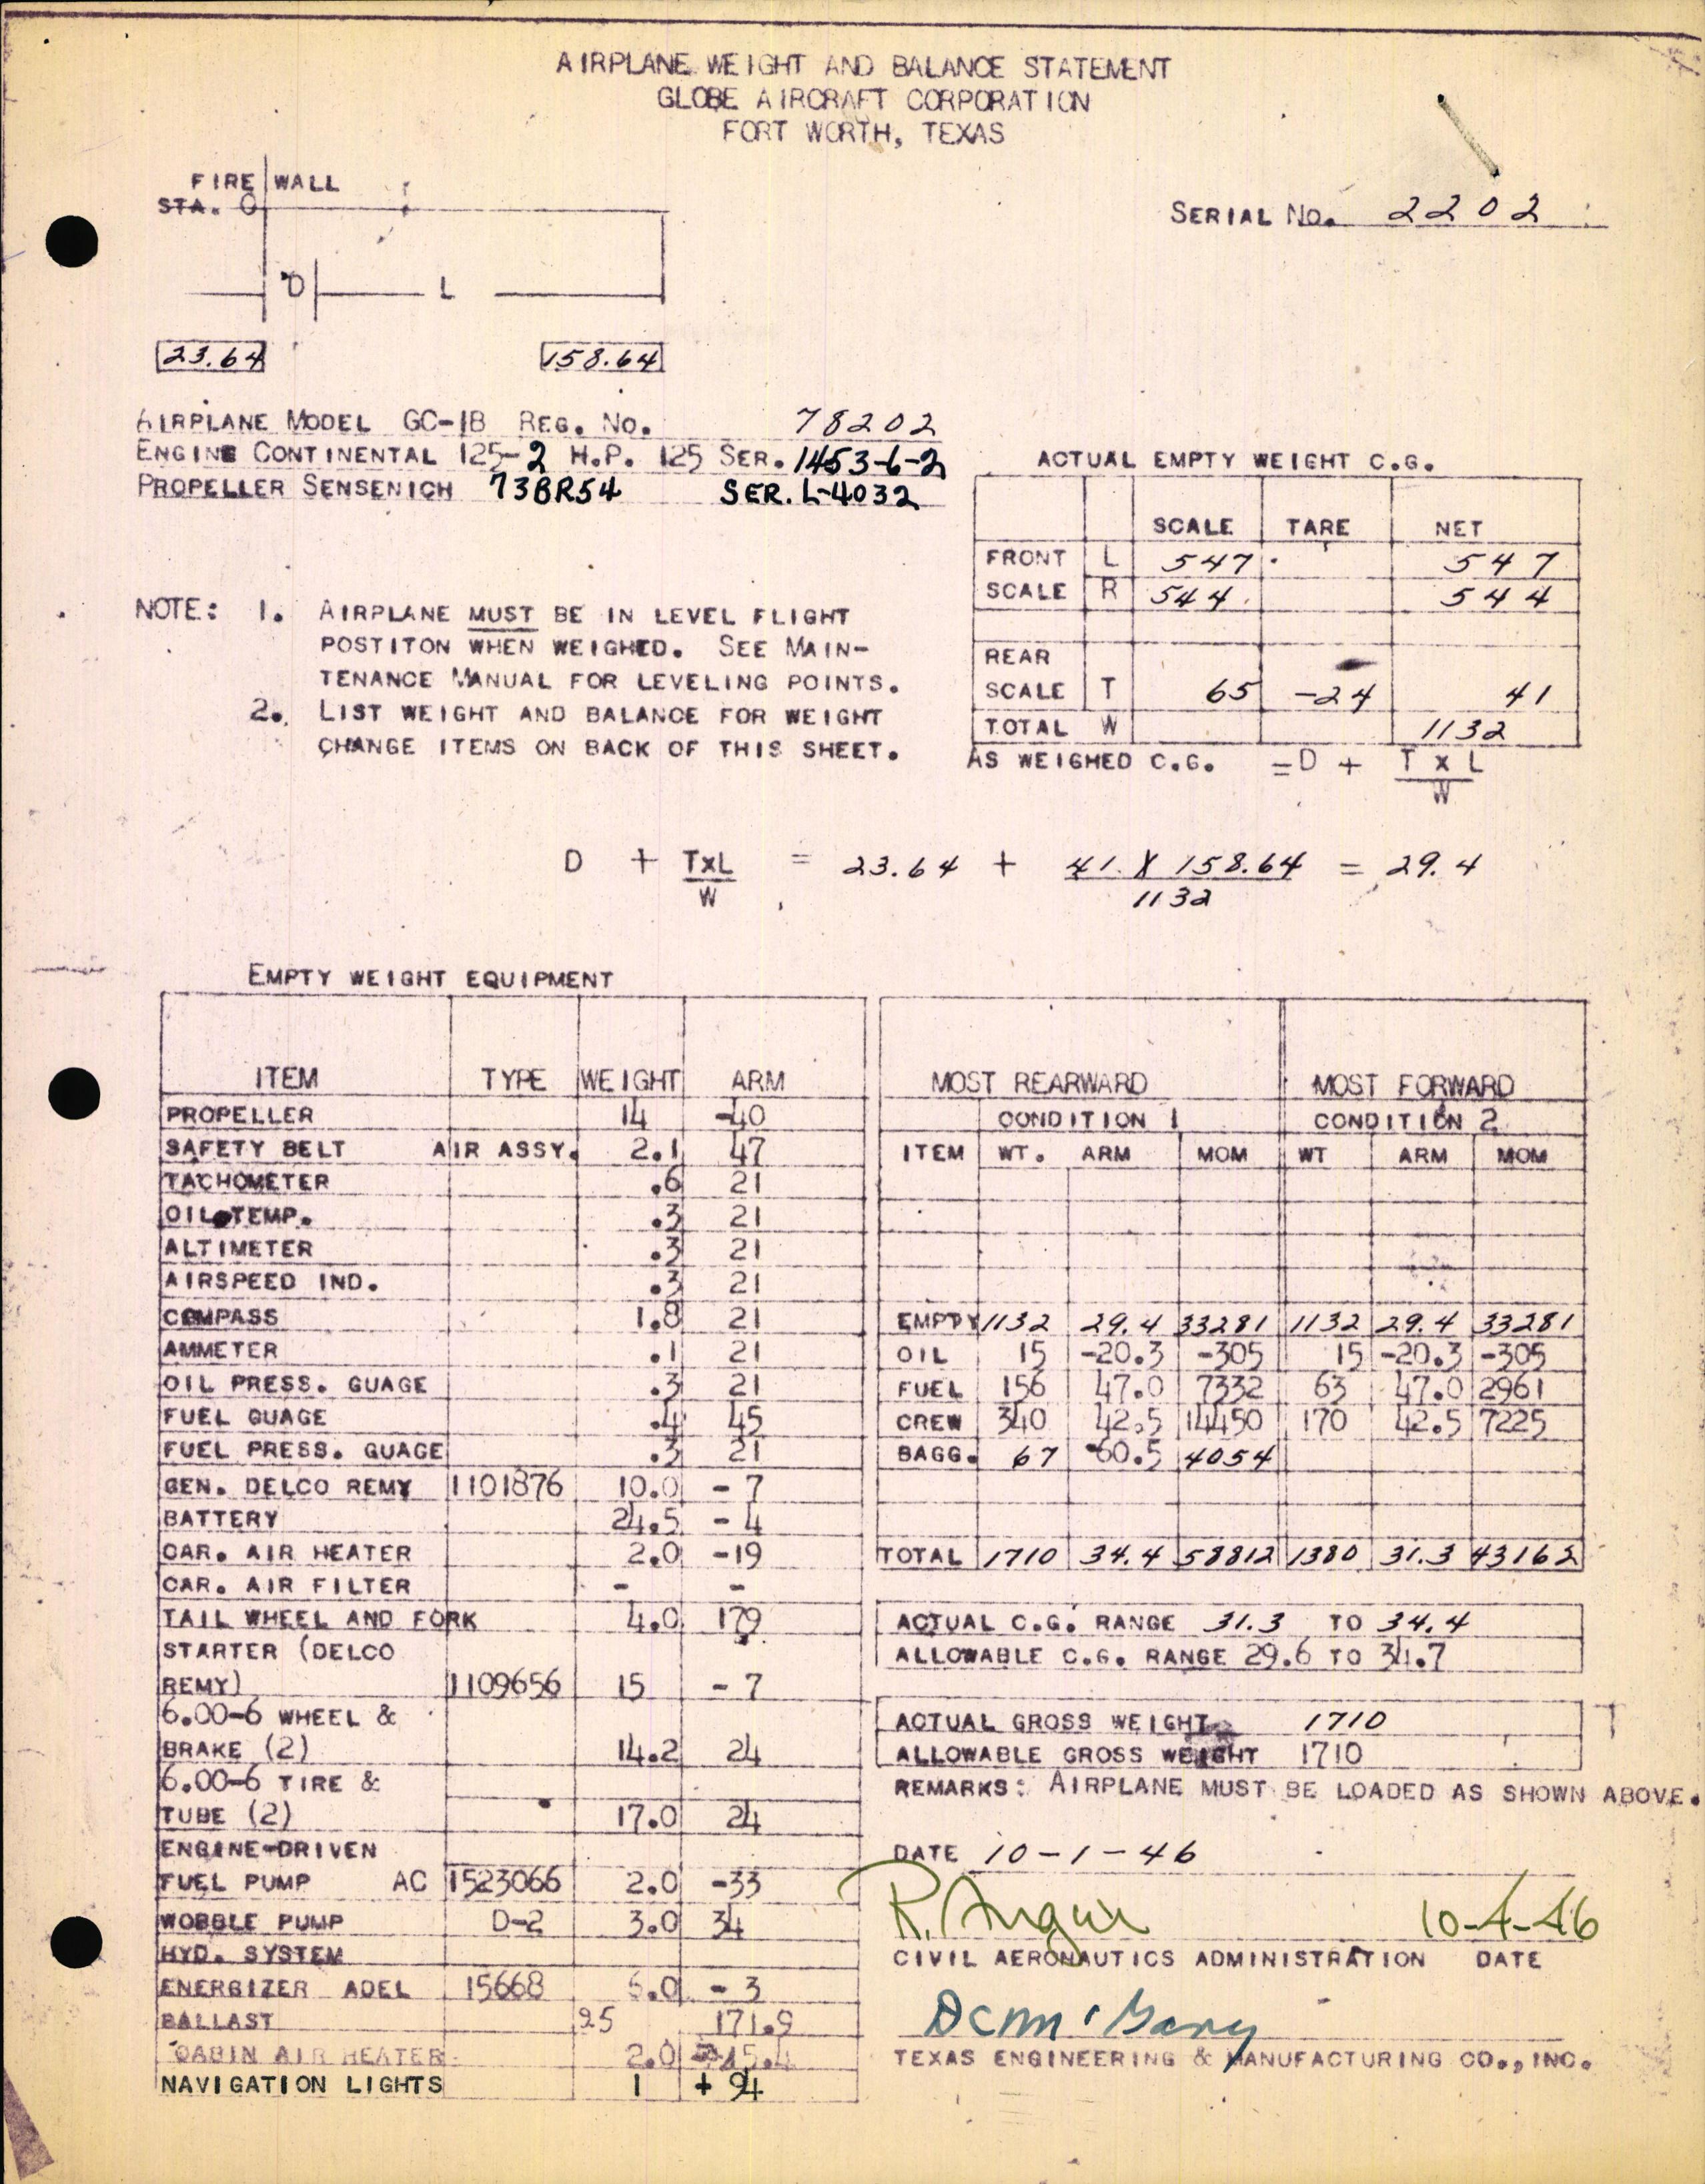 AIRPLANE WEIGHT AND BALANCE STATEMENT
GLOBE AIRCRAFT CORPORATION
FORT WORTH, TEXAS
FIRE WALL
STA. 0
SERIAL NO. 2202
D L
23.64 158.64
AIRPLANE MODEL GC-1B REG. NO. 78202
ENGINE CONTINENTAL 125-2 H.P. 125 SER. 1453-6-2
PROPELLER SENSENICH 73BR54 SER. L-4032
ACTUAL EMPTY WEIGHT C.G.
SCALE TARE NET
FRONT L 547 547
SCALE R 544 544
REAR
SCALE T 65 -24 41
TOTAL W 1132
AS WEIGHED C.G. = D + T x L
W
NOTE: 1. AIRPLANE MUST BE IN LEVEL FLIGHT
POSTITON WHEN WEIGHED. SEE MAIN-
TENANCE MANUAL FOR LEVELING POINTS.
2. LIST WEIGHT AND BALANCE FOR WEIGHT
CHANGE ITEMS ON BACK OF THIS SHEET.
D + TxL = 23.64 + 41 X 158.64 = 29.4
W 1132
EMPTY WEIGHT EQUIPMENT
ITEM TYPE WEIGHT ARM
PROPELLER 14 -40
SAFETY BELT AIR ASSY. 2.1 47
TACHOMETER .6 21
OIL TEMP. .3 21
ALTIMETER .3 21
AIRSPEED IND. .3 21
COMPASS 1.8 21
AMMETER .1 21
OIL PRESS. GUAGE .3 21
FUEL GUAGE .4 45
FUEL PRESS. GUAGE .3 21
GEN. DELCO REMY 1101876 10.0 - 7
BATTERY 24.5 - 4
CAR. AIR HEATER 2.0 -19
CAR. AIR FILTER - -
TAIL WHEEL AND FORK 4.0 179
STARTER (DELCO
REMY) 1109656 15 - 7
6.00-6 WHEEL &
BRAKE (2) 14.2 24
6.00-6 TIRE &
TUBE (2) 17.0 24
ENGINE-DRIVEN
FUEL PUMP AC 1523066 2.0 -33
WOBBLE PUMP D-2 3.0 34
HYD. SYSTEM
ENERGIZER ADEL 15668 6.0 - 3
BALLAST 25 171.9
CABIN AIR HEATER 2.0
NAVIGATION LIGHTS 1 + 94
MOST REARWARD MOST FORWARD
CONDITION 1 CONDITION 2
ITEM WT. ARM MOM WT ARM MOM
EMPTY 1132 29.4 33281 1132 29.4 33281
OIL 15 -20.3 -305 15 -20.3 -305
FUEL 156 47.0 7332 63 47.0 2961
CREW 340 42.5 14450 170 42.5 7225
BAGG. 67 60.5 4054
TOTAL 1710 34.4 58812 1380 31.3 43162
ACTUAL C.G. RANGE 31.3 TO 34.4
ALLOWABLE C.G. RANGE 29.6 TO 34.7
ACTUAL GROSS WEIGHT 1710
ALLOWABLE GROSS WEIGHT 1710
REMARKS: AIRPLANE MUST BE LOADED AS SHOWN ABOVE.
DATE 10-1-46
R. 10-4-46
CIVIL AERONAUTICS ADMINISTRATION DATE
TEXAS ENGINEERING & MANUFACTURING CO., INC.